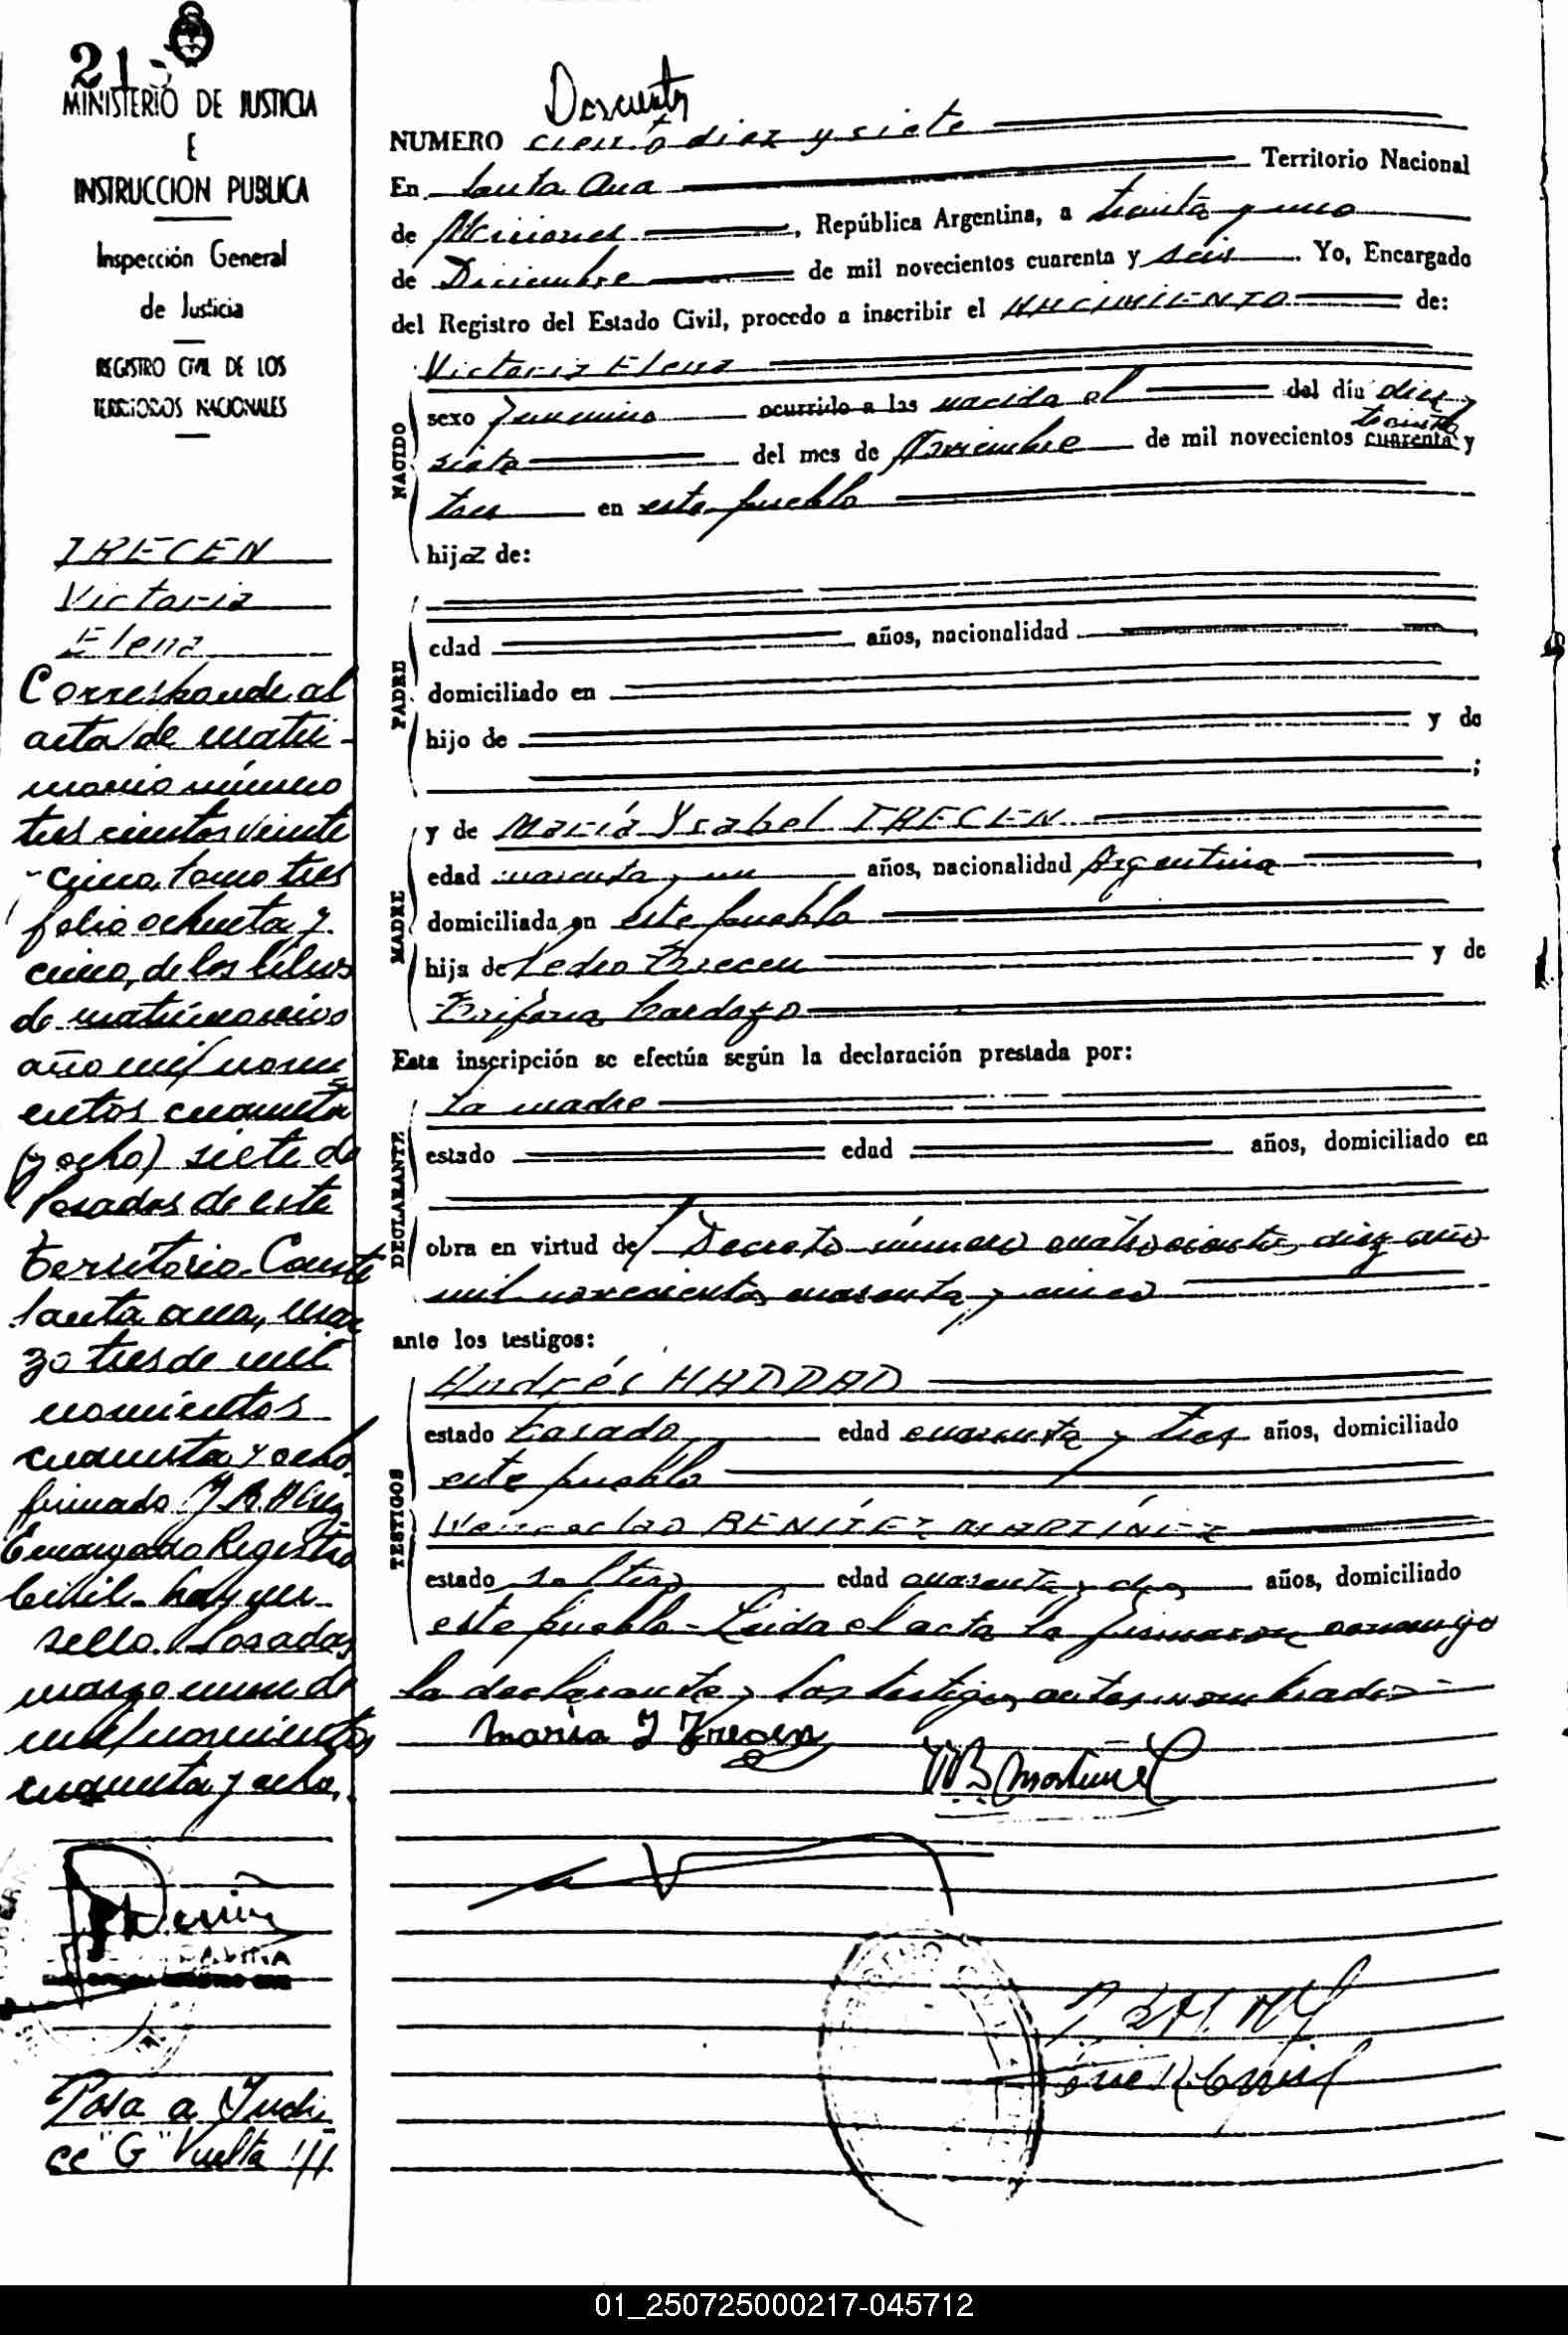 21
MINISTERIO DE JUSTICIA
E
INSTRUCCION PUBLICA
Inspección General
de Justicia
REGISTRO CIVIL DE LOS
TERRITORIOS NACIONALES
TRECEN
Victoria
Elena
Corresponde al
acta de matri-
monio número
tres cientos veinte
cinco, tomo tres
folio ochenta y
cinco, de los libros
de matrimonios
año mil nove
cientos cuarenta
(y ocho) siete de
Posadas de este
territorio. Conste
Santa Ana, mar
zo tres de mil
novecientos
cuarenta y ocho.
firmado
Encargado Registro
Civil - hay un
sello. Posadas
marzo de
mil novecientos
cuarenta y ocho.
Pasa a Indi
ce "G" Vuelta !!!
Doscientos
NUMERO ciento diez y siete
En Santa Ana Territorio Nacional
de Misiones, República Argentina, a treinta y uno
de Diciembre de mil novecientos cuarenta y seis. Yo, Encargado
del Registro del Estado Civil, procedo a inscribir el NACIMIENTO de:
NACIDO
Victoria Elena
sexo femenino ocurrido a las nacida el del día diez y
treinta
siete del mes de Noviembre de mil novecientos cuarenta y
tres en este pueblo
hija de:
PADRE
edad años, nacionalidad
domiciliado en
hijo de y de
;
MADRE
y de María Ysabel TRECEN
edad cuarenta y un años, nacionalidad Argentina
domiciliada en este pueblo
hija de Pedro Trecen y de
Trifona Cardozo
Esta inscripción se efectúa según la declaración prestada por:
DECLARANTE
La madre
estado edad años, domiciliado en
obra en virtud del Decreto número cuatrocientos diez año
mil novecientos cuarenta y cinco
ante los testigos:
TESTIGOS
Andrés HADDAD
estado Casado edad cuarenta y tres años, domiciliado
este pueblo
Wenceslao BENÍTEZ MARTÍNEZ
estado soltero edad cuarenta y dos años, domiciliado
este pueblo - Leída el acta la firmaron conmigo
la declarante y los testigos antes nombrados
Maria Y Trecen
WB Martinez
01_250725000217-045712